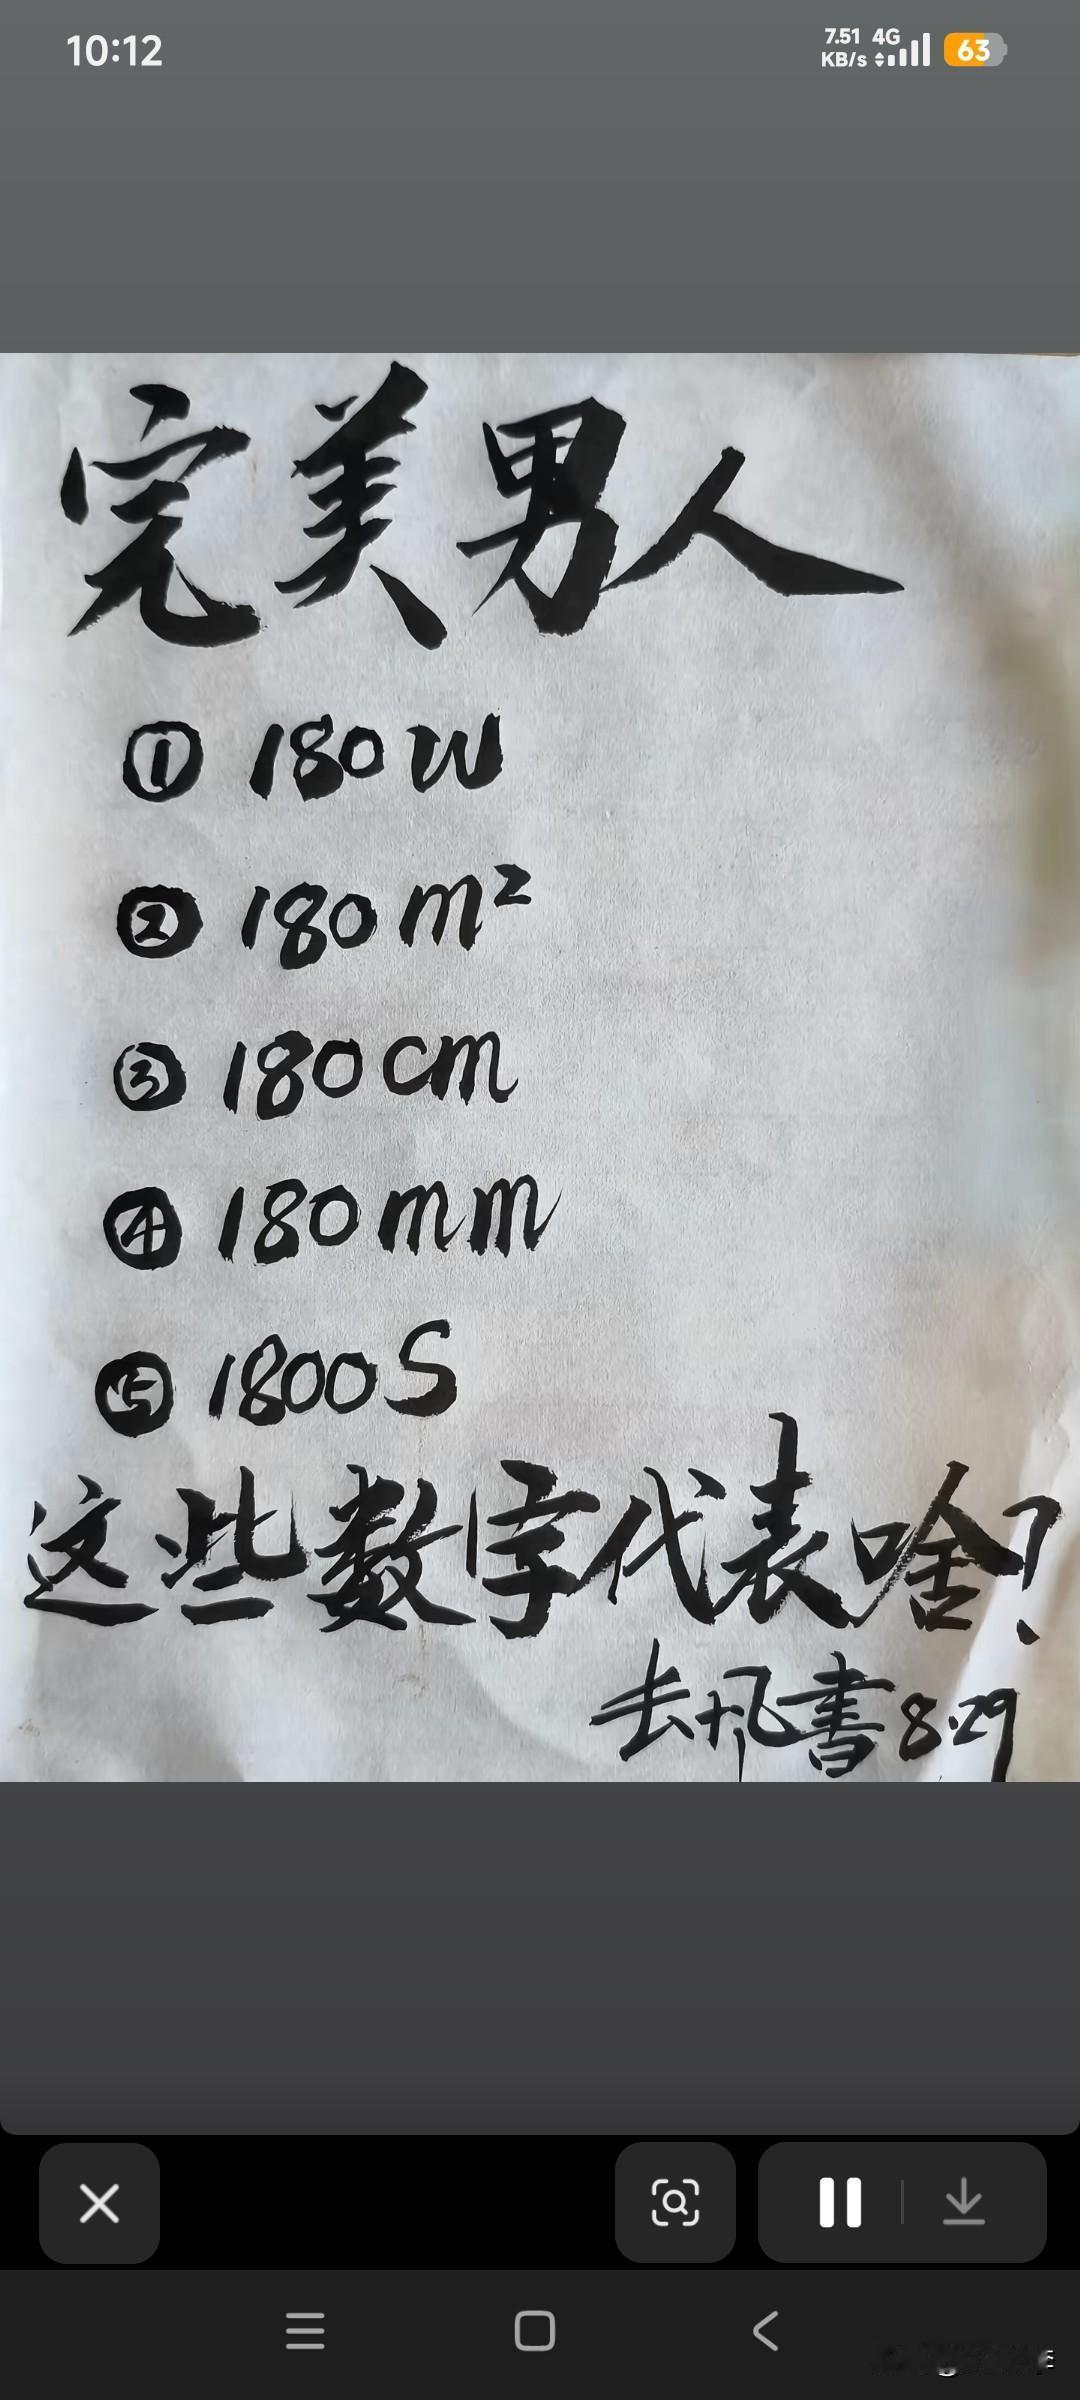 10:12
7.51 4G
KB/s
63
完美男人
① 180W
② 180m²
③ 180cm
④ 180mm
⑤ 1800S
这些数字代表啥?
书 8.29